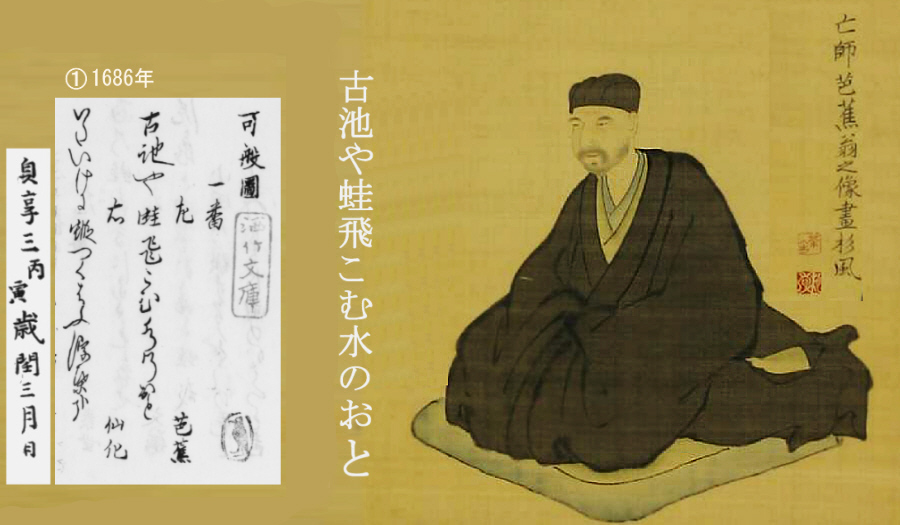 亡師芭蕉翁之像畫杉風
古池や蛙飛こむ水のおと
①1686年
可般圖
酒竹文庫
一番
左
古池や蛙飛こむ水のおと 芭蕉
右
いたいけに蝦つくばふ浮葉哉 仙化
貞享三丙寅歳閏三月日